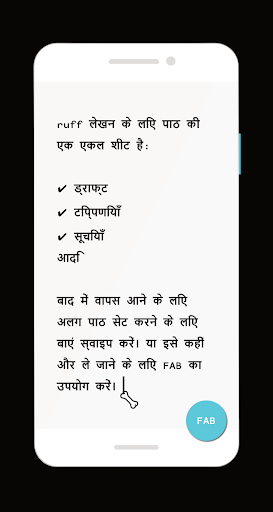 ruff लेखन के लिए पाठ की
एक एकल शीट है:
✔ ड्राफ्ट
✔ टिप्पणियाँ
✔ सूचियाँ
आदि
बाद में वापस आने के लिए
अलग पाठ सेट करने के लिए
बाएं स्वाइप करें। या इसे कहीं
और ले जाने के लिए FAB का
उपयोग करें।
FAB